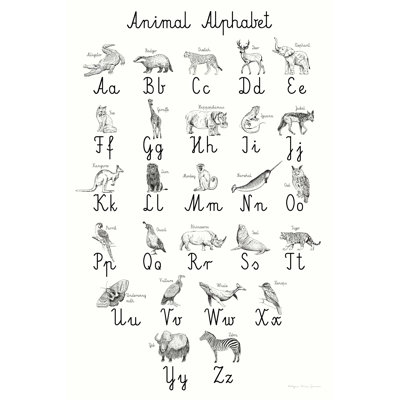 Animal Alphabet
Alligator Badger Cheetah Deer Elephant
Aa Bb Cc Dd Ee
Fox Giraffe Hippopotamus Iguana Jackal
Ff Gg Hh Ii Jj
Kangaroo Lion Monkey Narwhal Owl
Kk Ll Mm Nn Oo
Parrot Quail Rhinoceros Seal Tiger
Pp Qq Rr Ss Tt
Underwing moth Vulture Whale
Uu Vv Ww Xx
Yak Zebra
Yy Zz